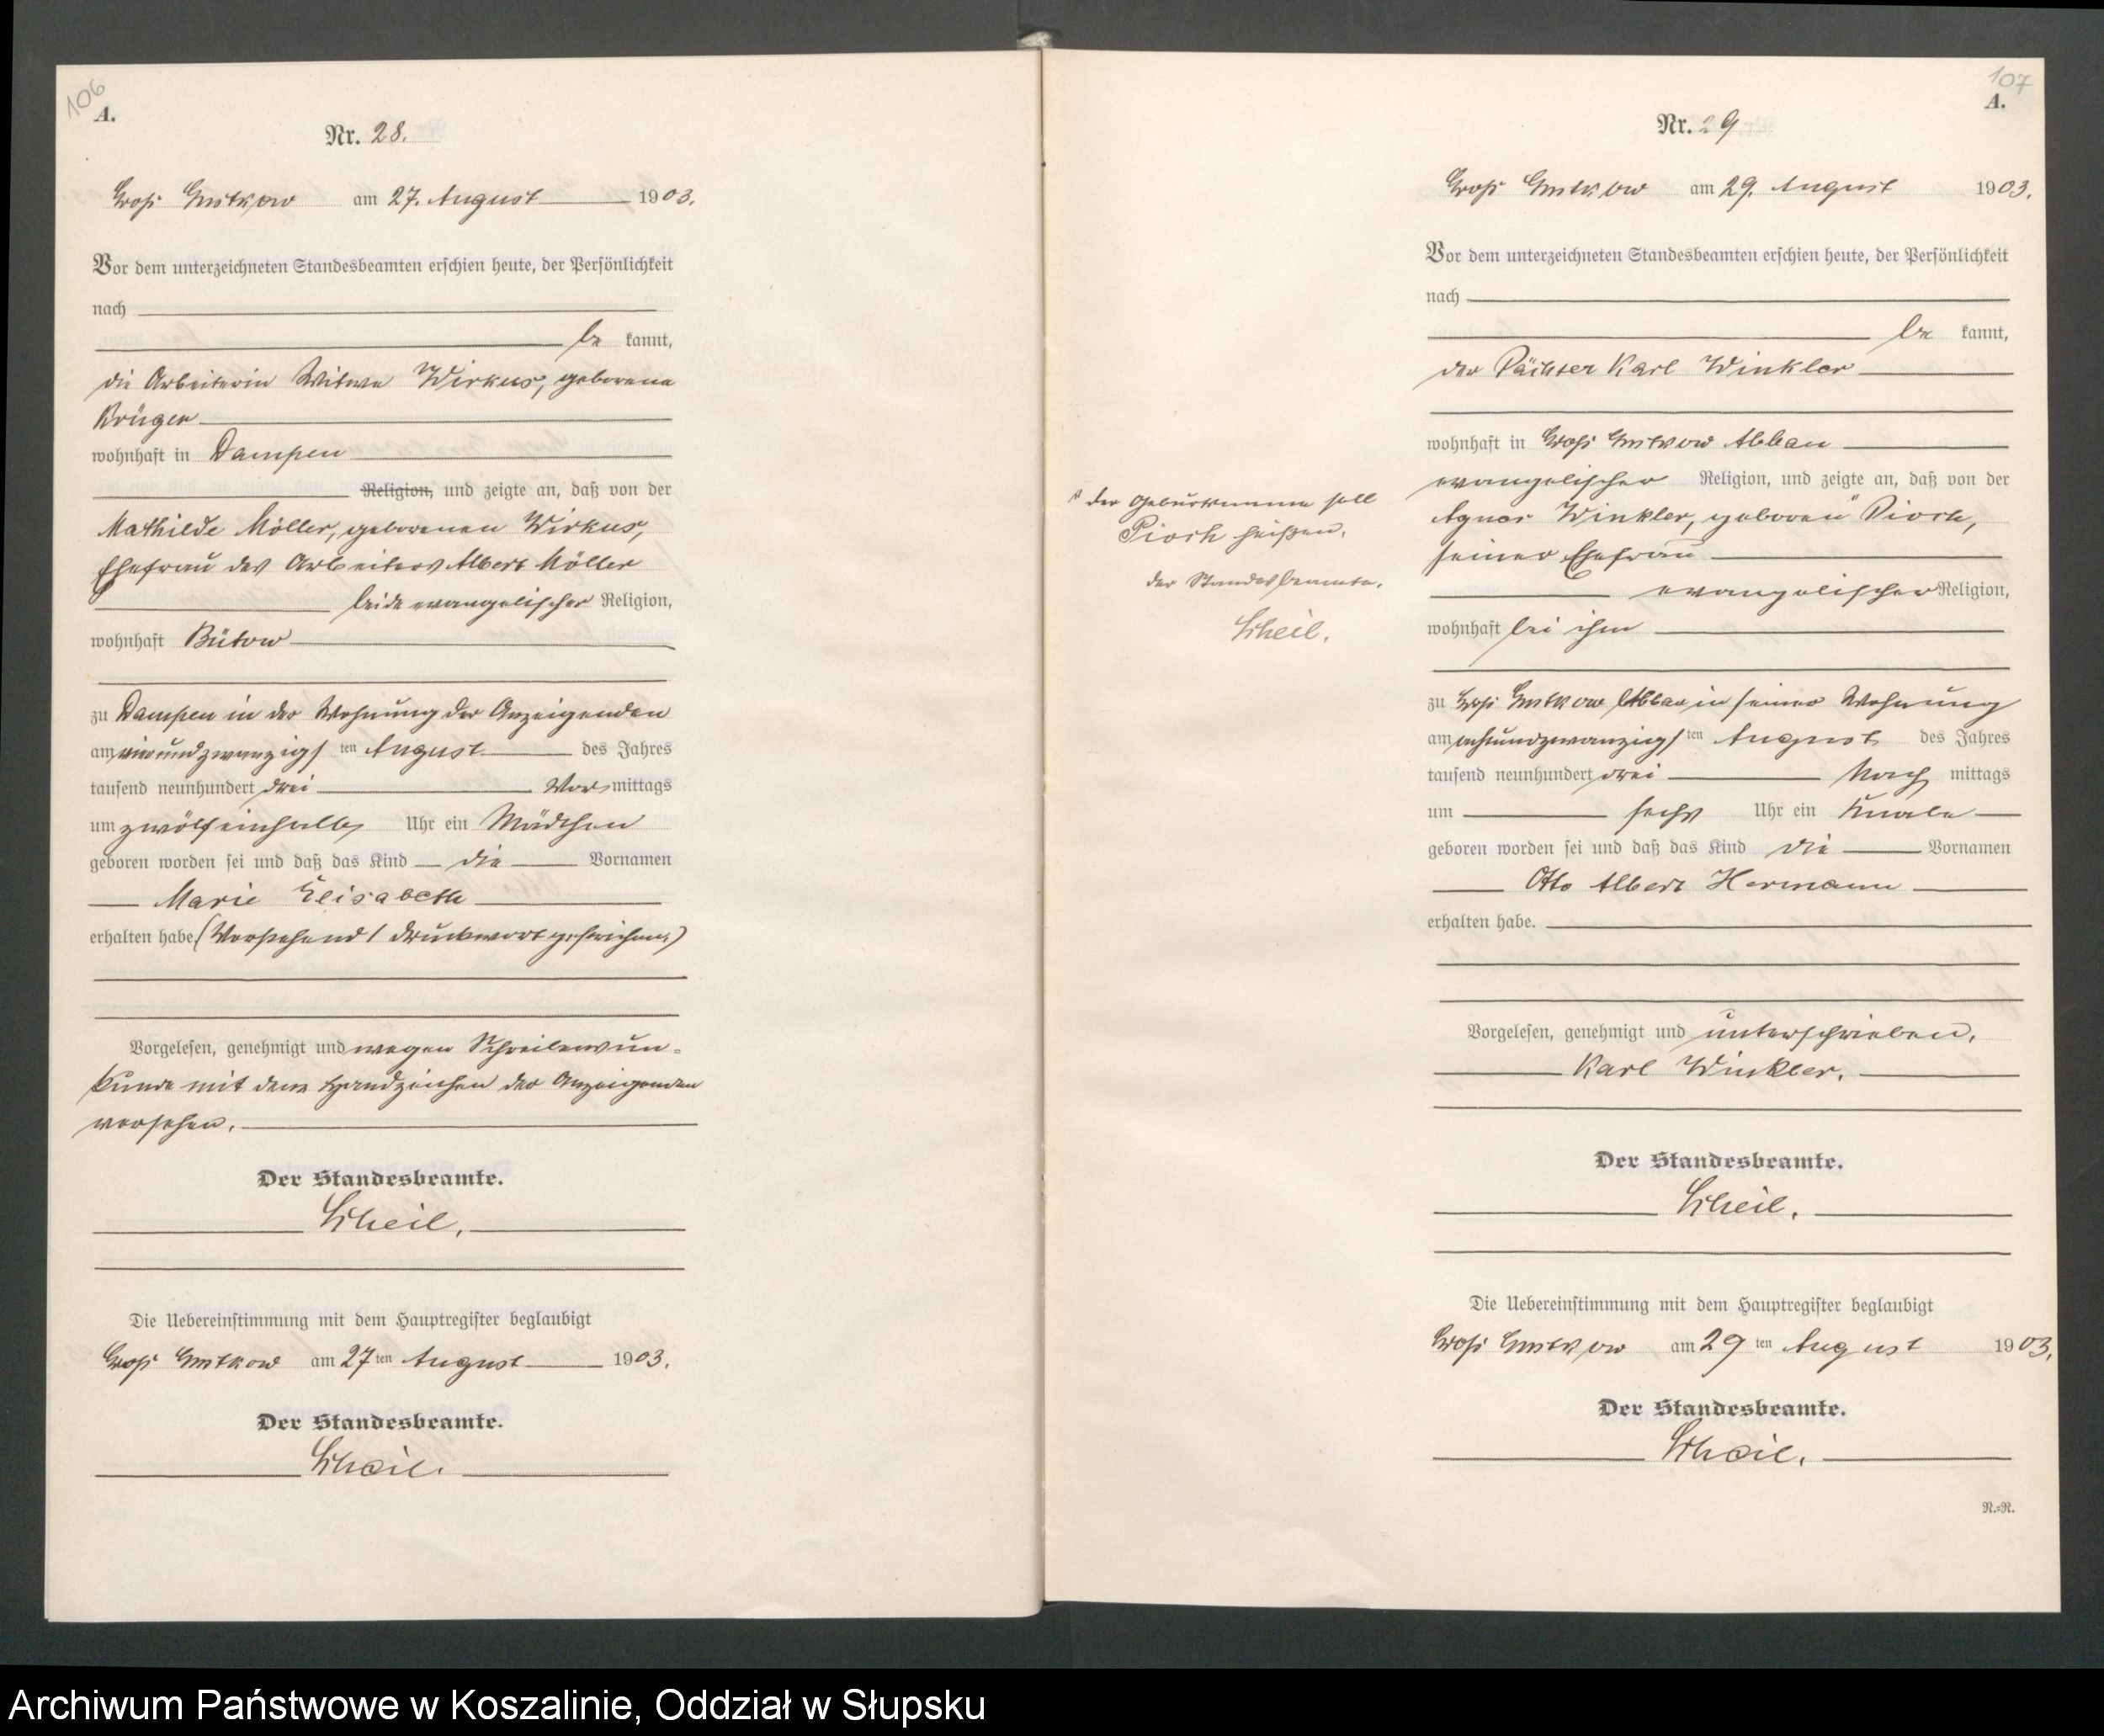 106
A.
Nr. 28.
Groß Gustkow am 27. August 1903.
Vor dem unterzeichneten Standesbeamten erschien heute, der Persönlichkeit
nach
be kannt,
die Arbeiterin Witwe Wirkus, geborene
Krüger
wohnhaft in Dampen
Religion, und zeigte an, daß von der
Mathilde Möller, geborenen Wirkus,
Ehefrau des Arbeiters Albert Möller
beide evangelischer Religion,
wohnhaft Bütow
zu Dampen in der Wohnung der Anzeigenden
am vierundzwanzigsten August des Jahres
tausend neunhundert drei Vormittags
um zwölfeinhalb Uhr ein Mädchen
geboren worden sei und daß das Kind die Vornamen
Marie Elisabeth
erhalten habe (Vorstehend 1 Druckwort gestrichen.)
Vorgelesen, genehmigt und wegen Schreibensun-
kunde mit dem Handzeichen der Anzeigenden
versehen.
Der Standesbeamte.
Scheil.
Die Uebereinstimmung mit dem Hauptregister beglaubigt
Groß Gustkow am 27ten August 1903.
Der Standesbeamte.
Scheil.
107
A.
Nr. 29
Groß Gustkow am 29. August 1903.
Vor dem unterzeichneten Standesbeamten erschien heute, der Persönlichkeit
nach
be kannt,
der Pächter Karl Winkler
wohnhaft in Groß Gustkow Abbau
evangelischer Religion, und zeigte an, daß von der
Agnes Winkler, geboren Piorch,
seiner Ehefrau
evangelischer Religion,
wohnhaft bei ihm
zu Groß Gustkow Abbau in seiner Wohnung
am achtundzwanzigsten August des Jahres
tausend neunhundert drei Nach mittags
um sechs Uhr ein Knabe
geboren worden sei und daß das Kind die Vornamen
Otto Albert Hermann
erhalten habe.
Vorgelesen, genehmigt und unterschrieben.
Karl Winkler.
Der Standesbeamte.
Scheil.
Die Uebereinstimmung mit dem Hauptregister beglaubigt
Groß Gustkow am 29ten August 1903.
Der Standesbeamte.
Scheil.
N.=N.
der Geburtsname soll
Piorch heißen.
der Standesbeamte.
Scheil.
Archiwum Państwowe w Koszalinie, Oddział w Słupsku